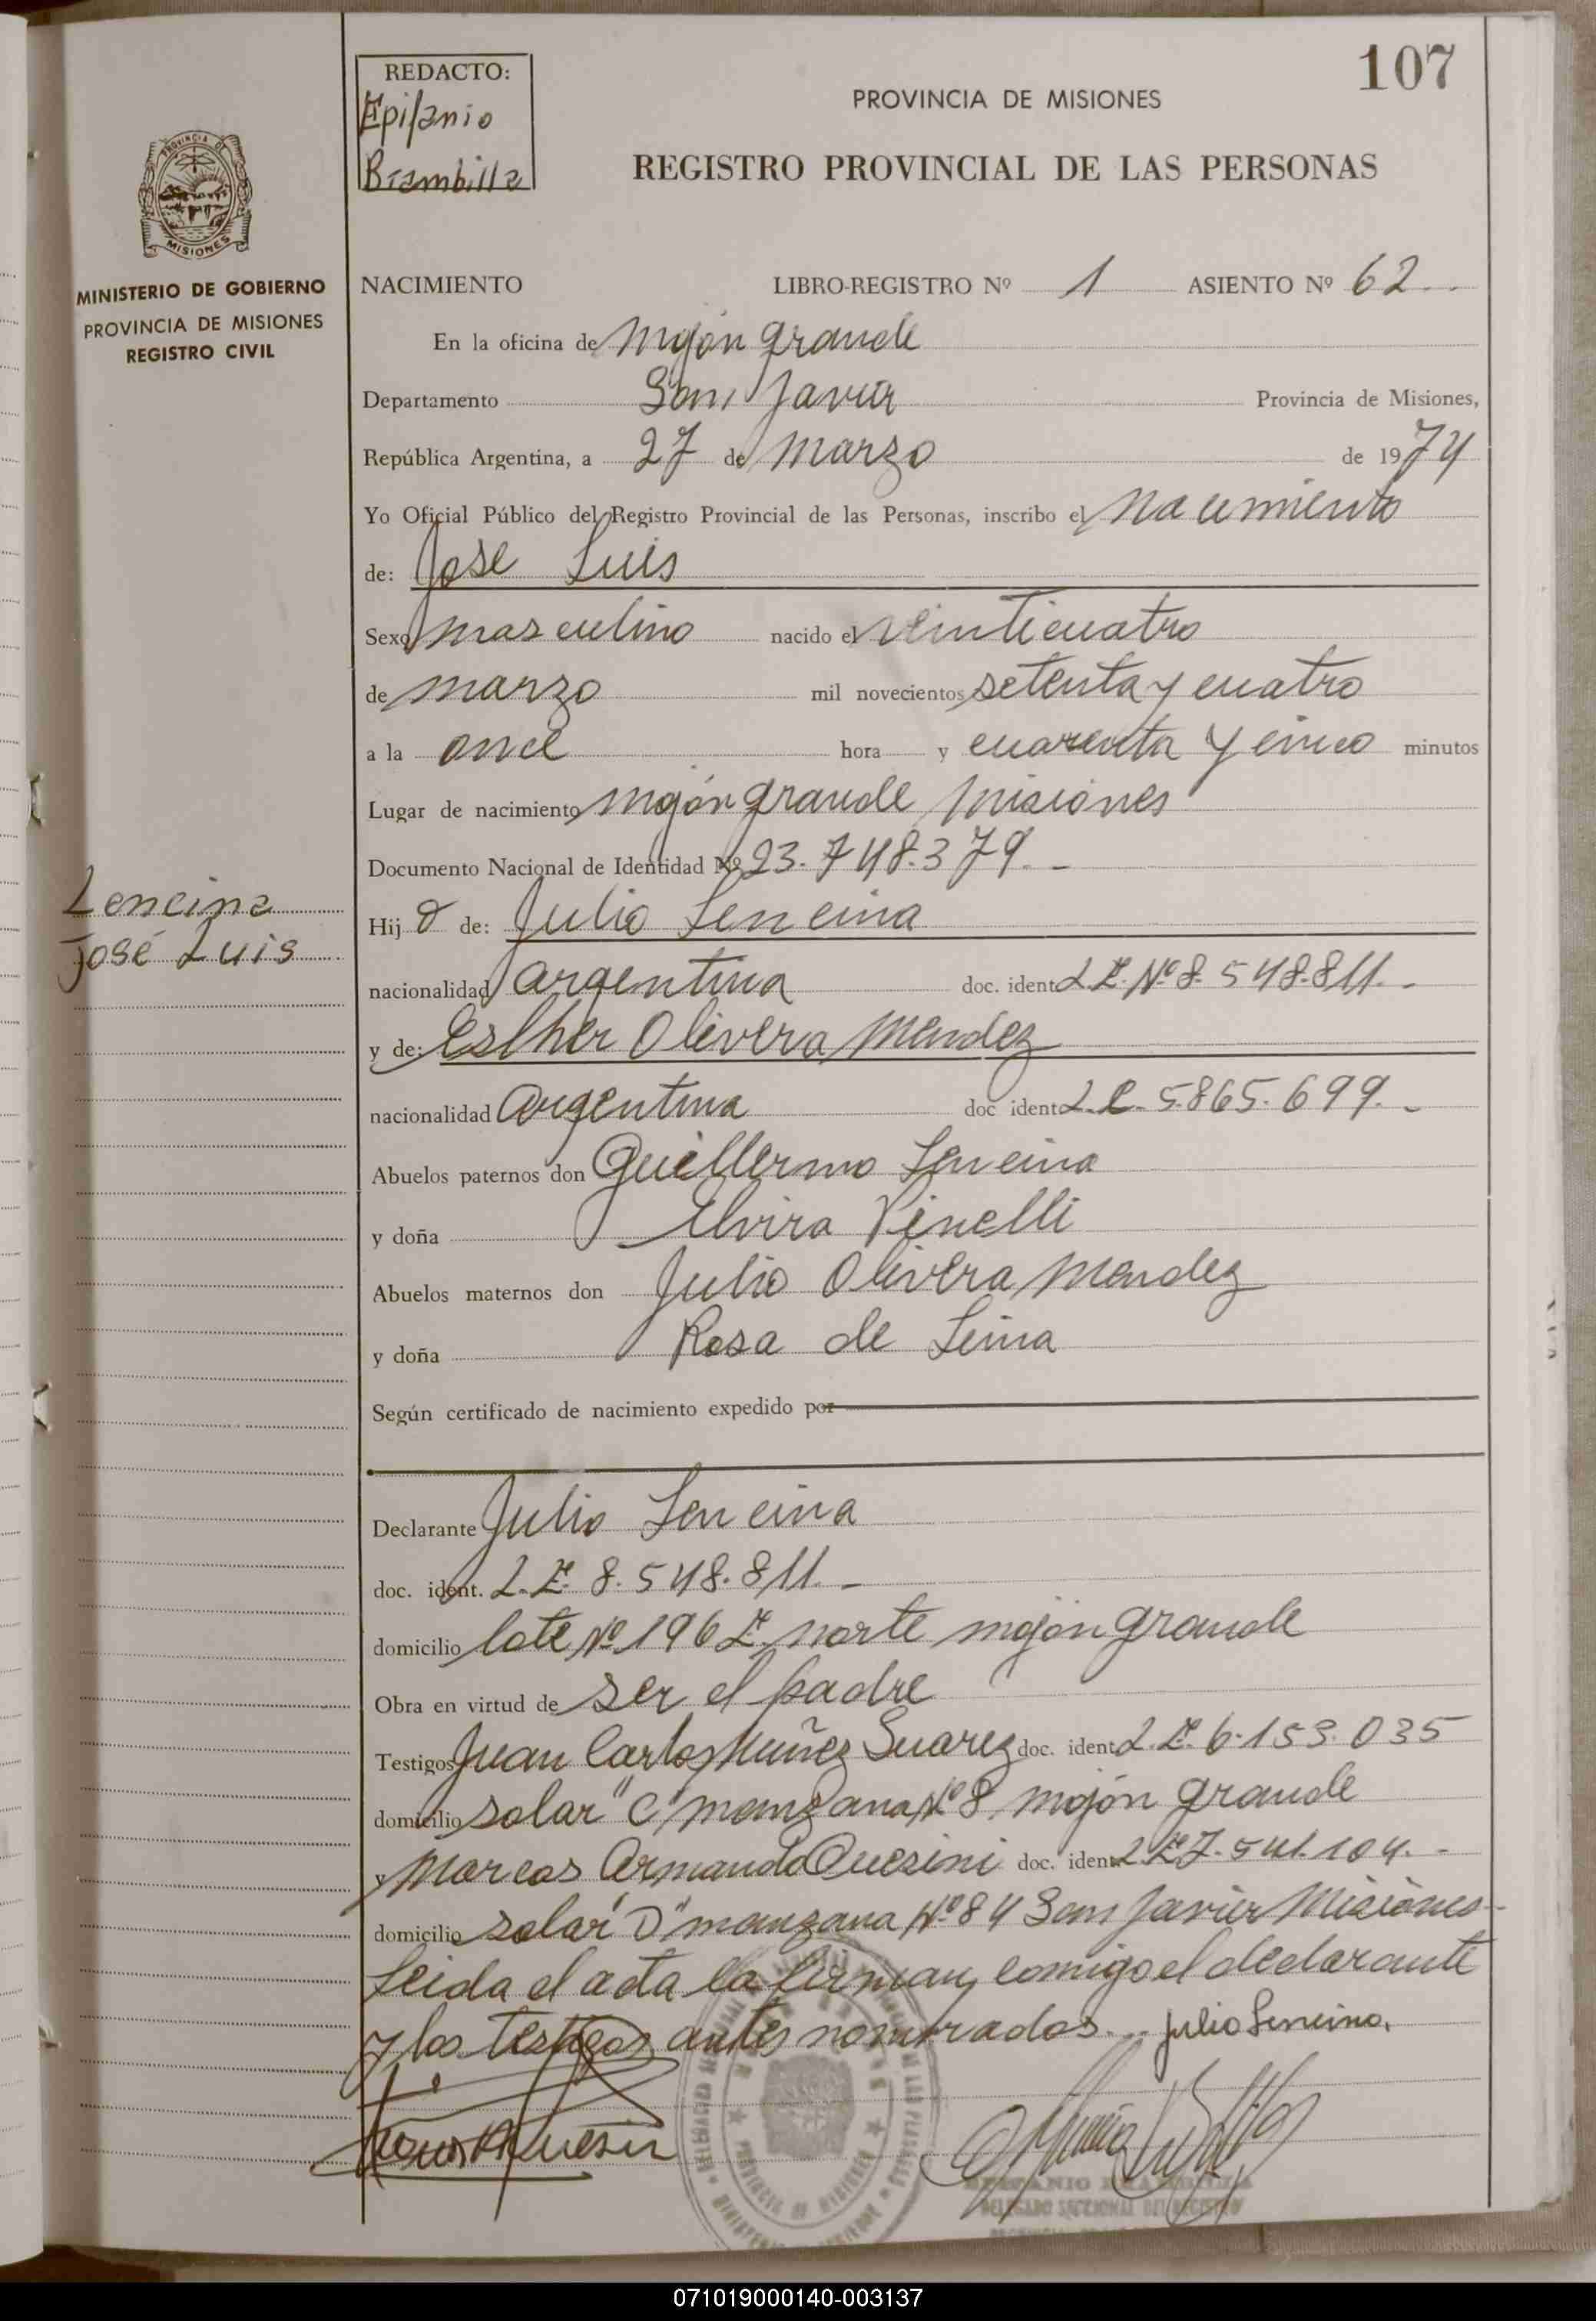 107
REDACTO:
Epifanio
Brambilla
PROVINCIA DE MISIONES
REGISTRO PROVINCIAL DE LAS PERSONAS
PROVINCIA DE
MISIONES
MINISTERIO DE GOBIERNO
PROVINCIA DE MISIONES
REGISTRO CIVIL
NACIMIENTO LIBRO-REGISTRO Nº 1 ASIENTO Nº 62
En la oficina de Mojón grande
Departamento San Javier Provincia de Misiones,
República Argentina, a 27 de Marzo de 1974
Yo Oficial Público del Registro Provincial de las Personas, inscribo el Nacimiento
de: Jose Luis
Sexo masculino nacido el veinticuatro
de marzo mil novecientos setenta y cuatro
a la once hora y cuarenta y cinco minutos
Lugar de nacimiento Mojón grande Misiones
Documento Nacional de Identidad Nº 23.748.379.-
Lencina
José Luis
Hij o de: Julio Lencina
nacionalidad argentina doc. ident. L.E. Nº 8.548.811.-
y de: Esther Olivera Mendez
nacionalidad argentina doc ident. L.C. 5.865.699.-
Abuelos paternos don Guillermo Lencina
y doña Elvira Pinelli
Abuelos maternos don Julio Olivera Mendez
y doña Rosa de Lima
Según certificado de nacimiento expedido por
Declarante Julio Lencina
doc. ident. L.E. 8.548.811.-
domicilio lote Nº 196 L. norte mojón grande
Obra en virtud de ser el padre
Testigos Juan Carlos Nuñez Suarez doc. ident. L.E. 6.153.035
domicilio solar "C" manzana Nº 8 mojón grande
y Marcos Armando Quesini doc. ident. L.E. 7.541.104.-
domicilio solar "D" manzana Nº 84 San Javier Misiones-
Leida el acta la firman comigo el declarante
y los testigos antes nombrados. Julio Lencina.
PROVINCIA DE MISIONES
DELEGADO SECCIONAL DEL REGISTRO
071019000140-003137